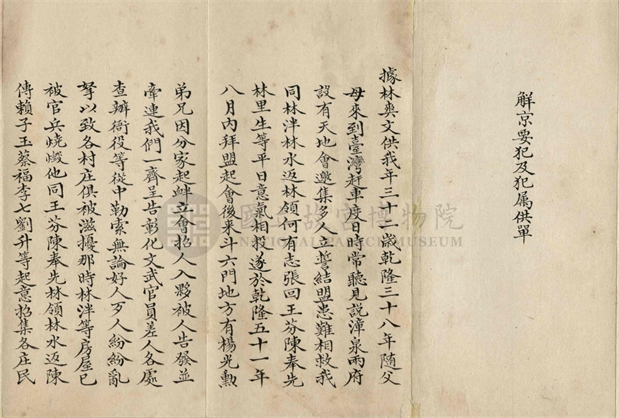 解京要犯及犯屬供單
據林爽文供我年三十二歲乾隆三十八年隨父
母來到臺灣趕車度日時常聽見說漳泉兩府
設有天地會邀集多人立誓結盟患難相救我
同林泮林水返林領何有志張回王芬陳奉先
林里生等平日意氣相投遂於乾隆五十一年
八月內拜盟起會後來斗六門地方有楊光勳
弟兄因分家起衅立會招人入夥被人告發並
牽連我們一齊呈告彰化文武官員差人各處
查辦衙役等從中勒索無論好人歹人紛紛亂
拏以致各村庄俱被滋擾那時林泮等房屋已
被官兵燒燬他同王芬陳奉先林領林水返陳
傳賴子玉蔡福李七劉升等起意招集各庄民
國立故宮博物院
NATIONAL PALACE MUSEUM